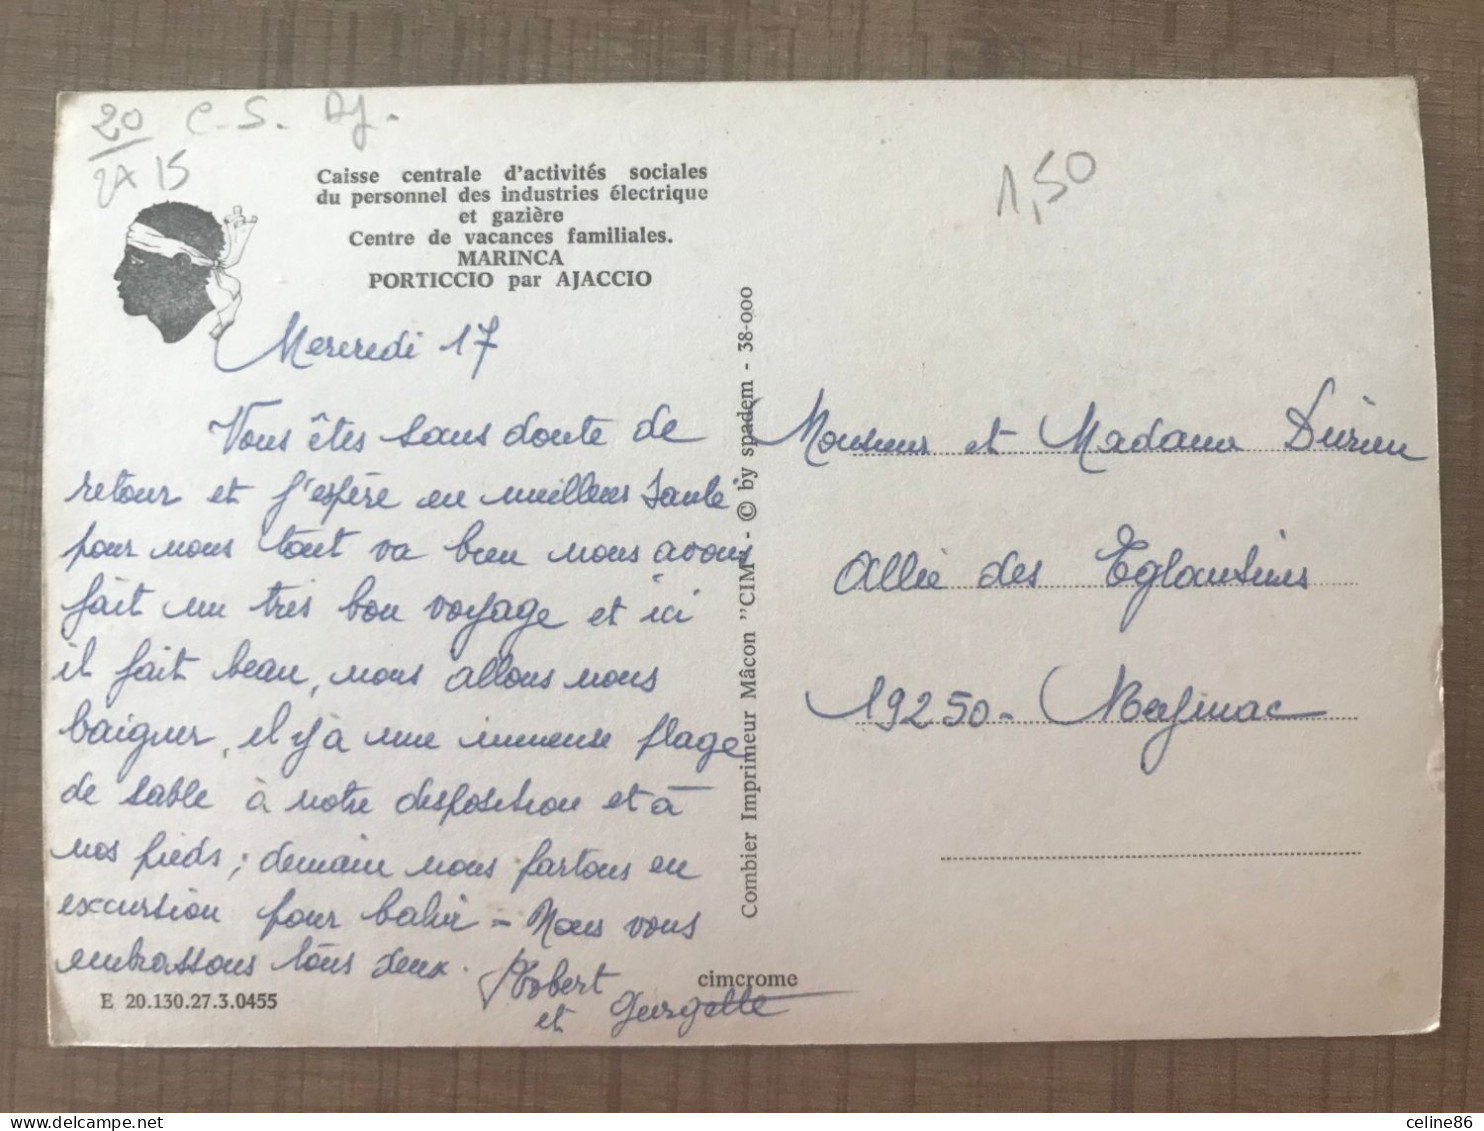 20 C. S. Aj.
2A 15
Caisse centrale d'activités sociales
du personnel des industries électrique
et gazière
Centre de vacances familiales.
MARINCA
PORTICCIO par AJACCIO
1,50
Mercredi 17
Vous êtes sans doute de
retour et j'espère en meilleure santé
pour nous tout va bien nous avons
fait un très bon voyage et ici
il fait beau, nous allons nous
baigner, il y a une immense plage
de sable à notre disposition et à
nos pieds ; demain nous partons en
excursion pour - Nous vous
embrassons tous deux. Robert
et Georgette
E 20.130.27.3.0455
cimcrome
Combier Imprimeur Mâcon "CIM" - © by spadem - 38-000
Monsieur et Madame
Allée des Eglantines
19250 - Meymac
celine86